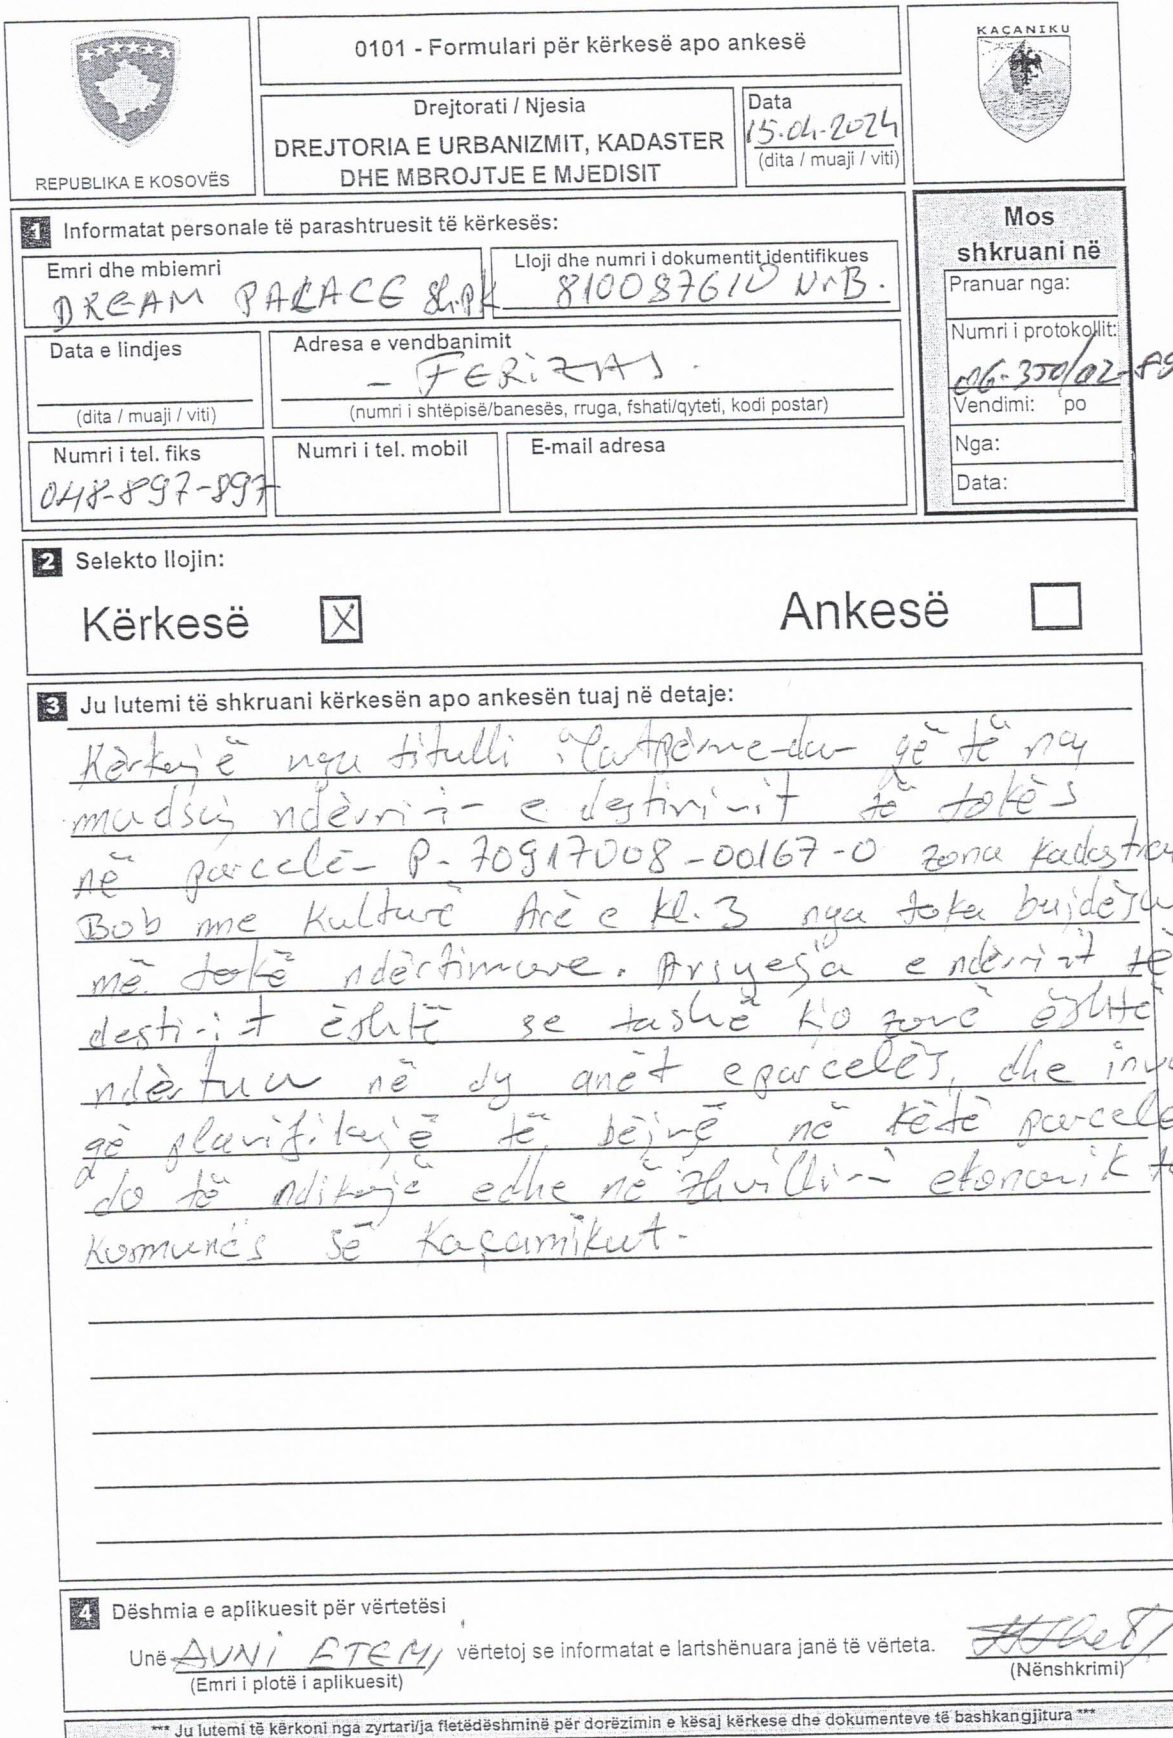 0101 - Formulari për kërkesë apo ankesë
KAÇANIKU
REPUBLIKA E KOSOVËS
Drejtorati / Njesia
DREJTORIA E URBANIZMIT, KADASTER
DHE MBROJTJE E MJEDISIT
Data
15.04.2024
(dita / muaji / viti)
1 Informatat personale të parashtruesit të kërkesës:
Emri dhe mbiemri
DREAM PALACE Sh.pk
Lloji dhe numri i dokumentit identifikues
810087610 NrB.
Data e lindjes
(dita / muaji / viti)
Adresa e vendbanimit
- FERiZAJ.
(numri i shtëpisë/banesës, rruga, fshati/qyteti, kodi postar)
Numri i tel. fiks
048-897-897
Numri i tel. mobil
E-mail adresa
Mos
shkruani në
Pranuar nga:
Numri i protokollit:
06-350/02-
Vendimi: po
Nga:
Data:
2 Selekto llojin:
Kërkesë X
Ankesë
3 Ju lutemi të shkruani kërkesën apo ankesën tuaj në detaje:
Kërkojë nga titulli që të na
e destinimit të tokës
në parcelë- P-70917008-00167-0 zona kadastra
Bob me Kulturë Arë e kl.3 nga toka bujqësu
më tokë ndërtimore. Arsyeja e të
është se tashë kjo zonë është
ndërtua në dy anët e parcelës, dhe inve
që planifikojë të bëjnë në këtë parcelë
do të ndikojë edhe në zhvillimin ekonomik të
Komunës së Kaçanikut-
4 Dëshmia e aplikuesit për vërtetësi
Unë AVNi ETEMi vërtetoj se informatat e lartshënuara janë të vërteta.
(Emri i plotë i aplikuesit)
(Nënshkrimi)
*** Ju lutemi të kërkoni nga zyrtari/ja fletëdëshminë për dorëzimin e kësaj kërkese dhe dokumenteve të bashkangjitura ***